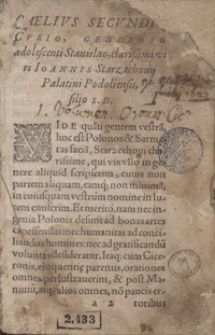 CAELIVS SECVNDVS
CVRIO, GENEROSO
adolescenti Stanislao, clarissimi vi
ri IOANNIS Starzechovij
Palatini Podoliensis,
filio s. D.
VIDE quāti gentem vestrā,
hoc est Polonos & Sarma
tas faciā, Starzechoui cha
rissime, qui vix vllo in ge
nere aliquid scripserim, cuius non
partem aliquam, eamq; non minimā,
in cuiusquam vestrûm nomine in lu
tem emiserim. Et meritò, nam nec in
genia Polonis desunt ad bonas artes
capessendas: nec humanitas ad conci
liandos homines: nec ad gratificandū
voluntas desideratur. Itaq; cum Cice
ronis, eloquentię parentis, orationes
omnes perlustrauerim, & post Ma
nutij, atq; alios omnes, nō paucis er-
a 2 roribus
2.433